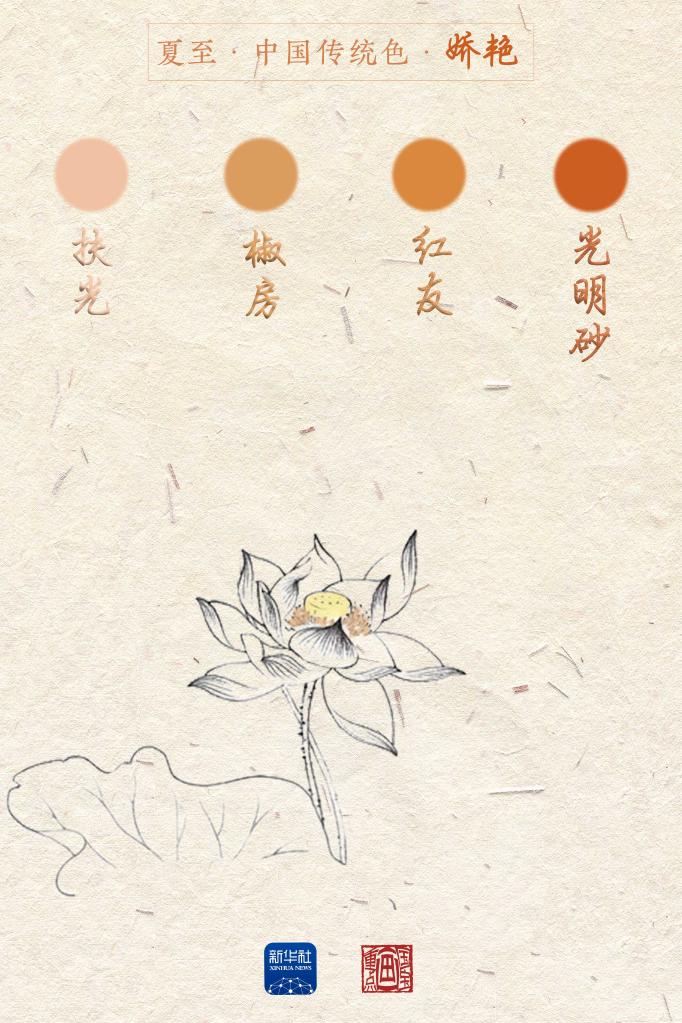 夏至·中国传统色·娇艳
扶光
椒房
红友
光明砂
新华社
XINHUA NEWS